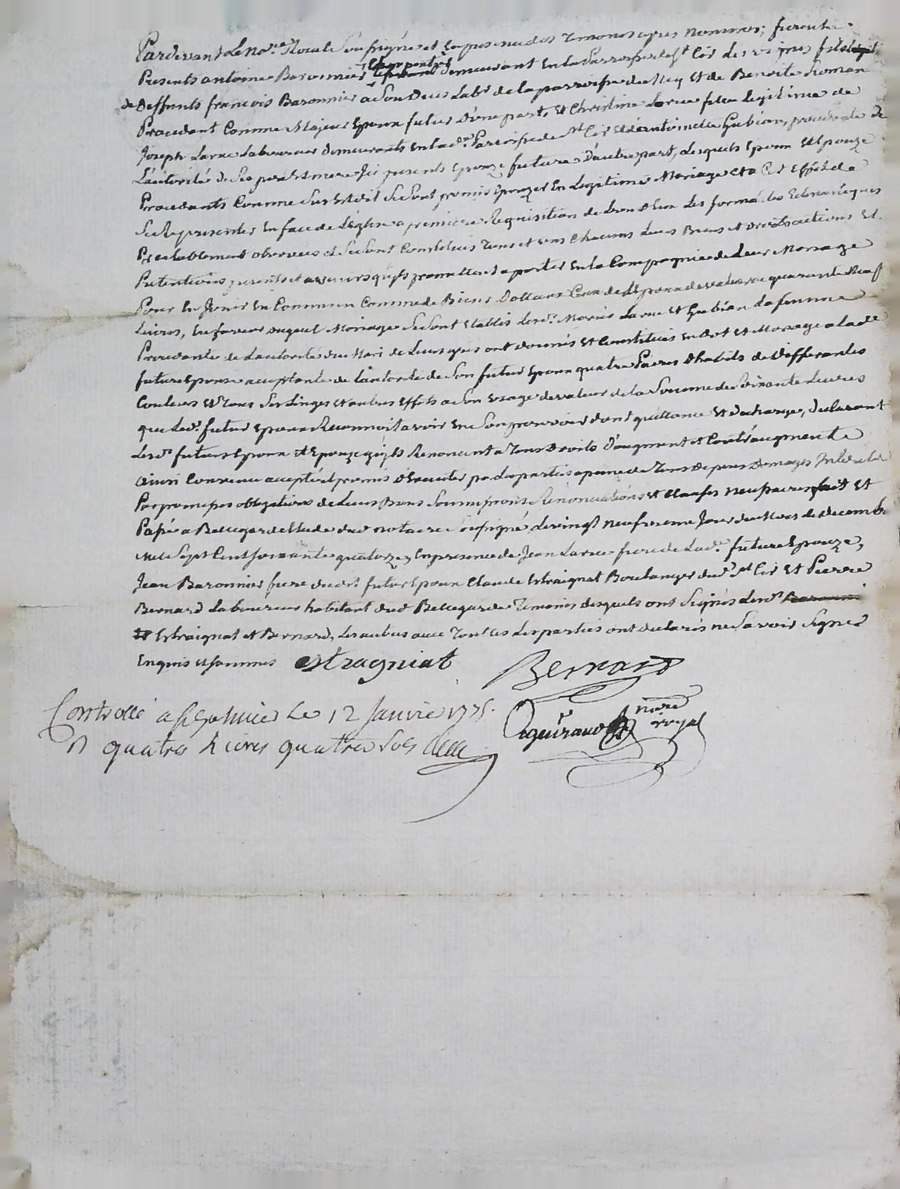 Pardevant Le nore Royal Soussigné et En presence des Temoins cyres nommes, furent
Presents antoine Baronnier charpentier demeurant En la Parroisse de St Cir des vignes fils légitime
de Deffunts françois Baronnier a son Deces Labr de la parroisse de et de Benoite Roman
Procedant Comme Majeur Epoux futur d'une part, Et Christine Larue fille legitime de
Joseph Larue Laboureur demeurants En lade Parroisse de St Cir Et d'antoinette Gubian, procedante de
L'autorité de Ses pere Et mere Icy presents Epouze future d'autre part, Lesquels Epoux Et Epouze
Procedants Comme Sus Est dit Se Sont promis Epouzer En Legitime Mariage Et a Cet Effet de
Se Representer En face de L'église a premiere Requisition de Lun d'Eux les formalités Eclesiastiques
Prealablement observees et Se Sont Constitues Tous et uns Chacuns Leurs Biens et Droits actions Et
Pretentions presents et avenirs qu'ils promettent aporter En la Compagnie de Leur Mariage
Pour En Jouir En Commun Comme de Biens Dottaux Ceux de L'Epoux de valeur quarante Neuf
Livres, En faveur duquel Mariage Se Sont Etablis Lesds Mariés Larue Et Gubian La femme
Procedante de L'autorité du Mari de Leurs gres ont donnés Et Constitués En dot Et Mariage a lade
future Epouse acceptante de L'autorité de Son futur Epoux quatre Paires D'habits de Differentes
Couleurs Et Tous Ses Linges Et autres Effets a Son usage de valeur de la Somme de Soixante Livres
que Led. futur Epoux Reconnoit avoir En Son pouvoir dont quittance Et decharge, declarant
Lesds futurs Epoux Et Epouze qu'ils Renoncent a Tous Droits D'augment et Contraugment
ainsi Convenu accepté promis Executer par les parties a peine de Tous Depens Domages Interets
Par promesses obligations de Leurs Biens Soumissions Renonciations et Clauses Necessaires fait Et
Passé a Bellegarde Etude du notaire Soussigné Le vingt neuf Jour du Mois de decembre
Mil Sept Cent Soixante quatorze, En presence de Jean Larue frere de Lade future Epouze,
Jean Baronnier frere dud. futur Epoux Claude Estraignat Boulanger dud St Cir Et Pierre
Bernard Laboureur habitant dud Bellegarde Temoins desquels ont Signés Lesds
Estraignat et Bernard, Les autres avec Toutes Les parties ont declarés ne Savoir Signer
Enquis et Sommes
Estragniat Bernard
Controllé a St Galmier Le 12 Janvier 1775.
R quatre Livres quatre Sols
guiraud nore royal